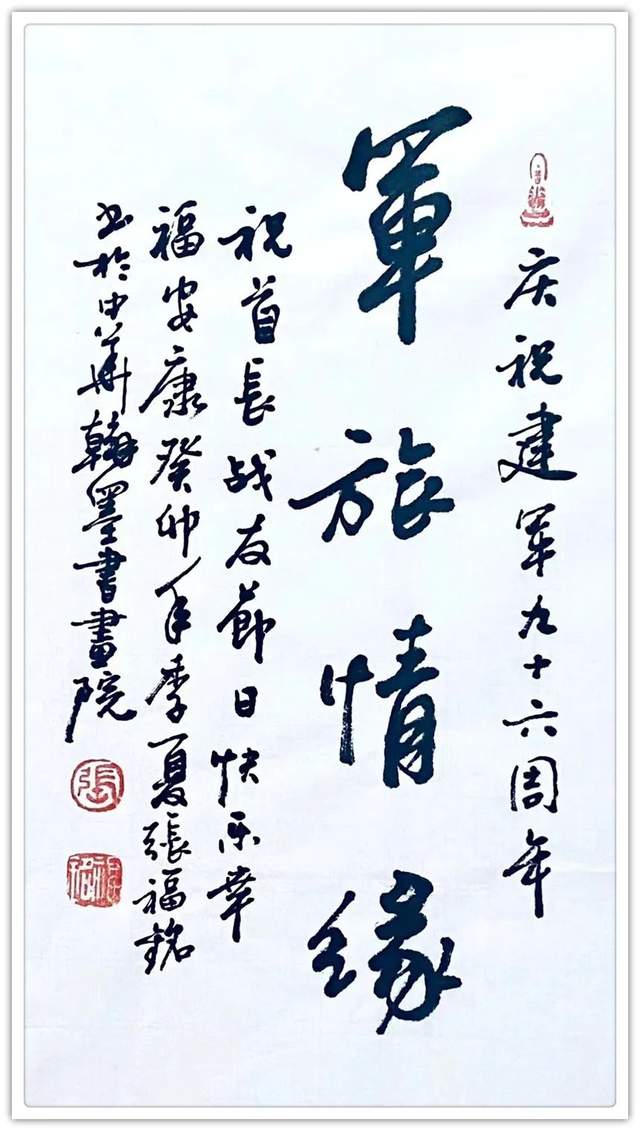 庆祝建军九十六周年
軍旅情缘
祝首長战友節日快乐幸
福安康癸卯年季夏張福銘
书於中華翰墨書畫院
張